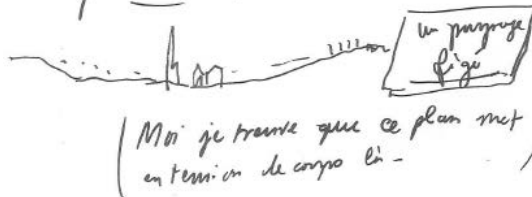 un paysage
figé
Moi je trouve que ce plan met
en tension le corps là -